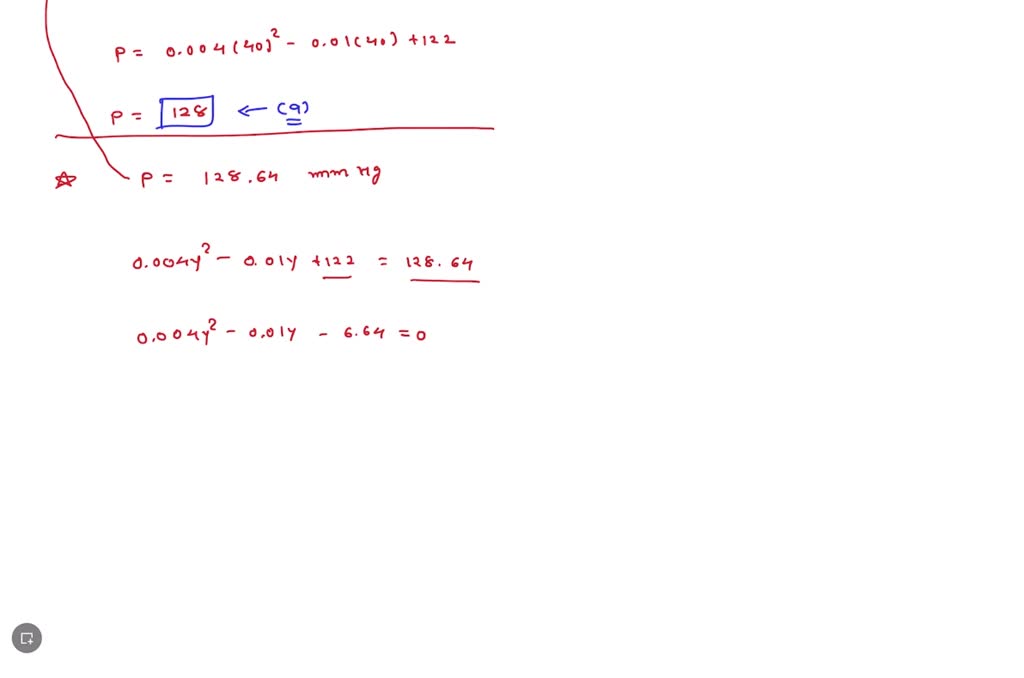 P = 0.004(40)² - 0.01(40) +122
P = 128 ← (a)
☆ P = 128.64 mm Hg
0.004y² - 0.01y +122 = 128.64
0.004y² - 0.01y - 6.64 = 0